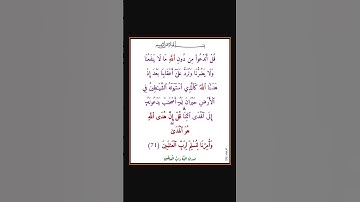 قُلْ أَنَدْعُوا۟ مِن دُونِ ٱللَّهِ مَا لَا يَنفَعُنَا
وَلَا يَضُرُّنَا وَنُرَدُّ عَلَىٰٓ أَعْقَابِنَا بَعْدَ إِذْ
هَدَىٰنَا ٱللَّهُ كَٱلَّذِى ٱسْتَهْوَتْهُ ٱلشَّيَـٰطِينُ فِى
ٱلْأَرْضِ حَيْرَانَ لَهُۥٓ أَصْحَـٰبٌ يَدْعُونَهُۥٓ
إِلَى ٱلْهُدَى ٱئْتِنَا قُلْ إِنَّ هُدَى ٱللَّهِ
هُوَ ٱلْهُدَىٰ
وَأُمِرْنَا لِنُسْلِمَ لِرَبِّ ٱلْعَـٰلَمِينَ (71)